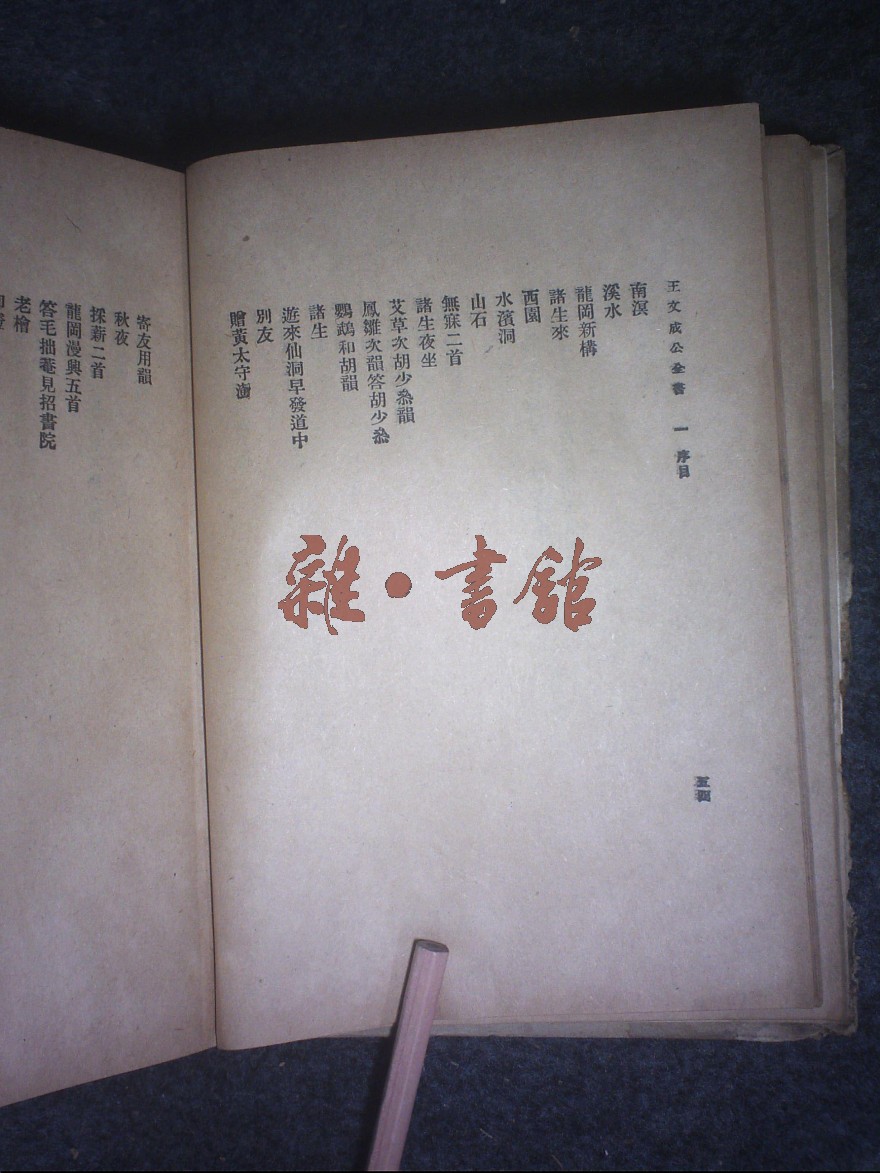 王文成公全書 一 序目
南溟
溪水
龍岡新構
諸生來
西園
水濱洞
山石
無寐二首
諸生夜坐
艾草次胡少叅韻
鳳雛次韻答胡少叅
鸚鵡和胡韻
諸生
遊來仙洞早發道中
別友
贈黃太守澍
五四
寄友用韻
秋夜
採薪二首
龍岡漫興五首
答毛拙菴見招書院
老檜
雜·書館